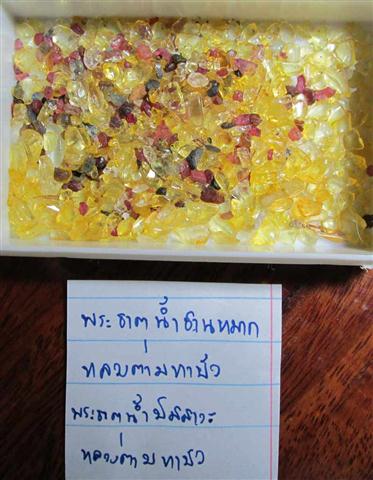 พระธาตุน้ำชานหมาก
หลวงตามหาบัว
พระธาตุน้ำปัสสาวะ
หลวงตามหาบัว